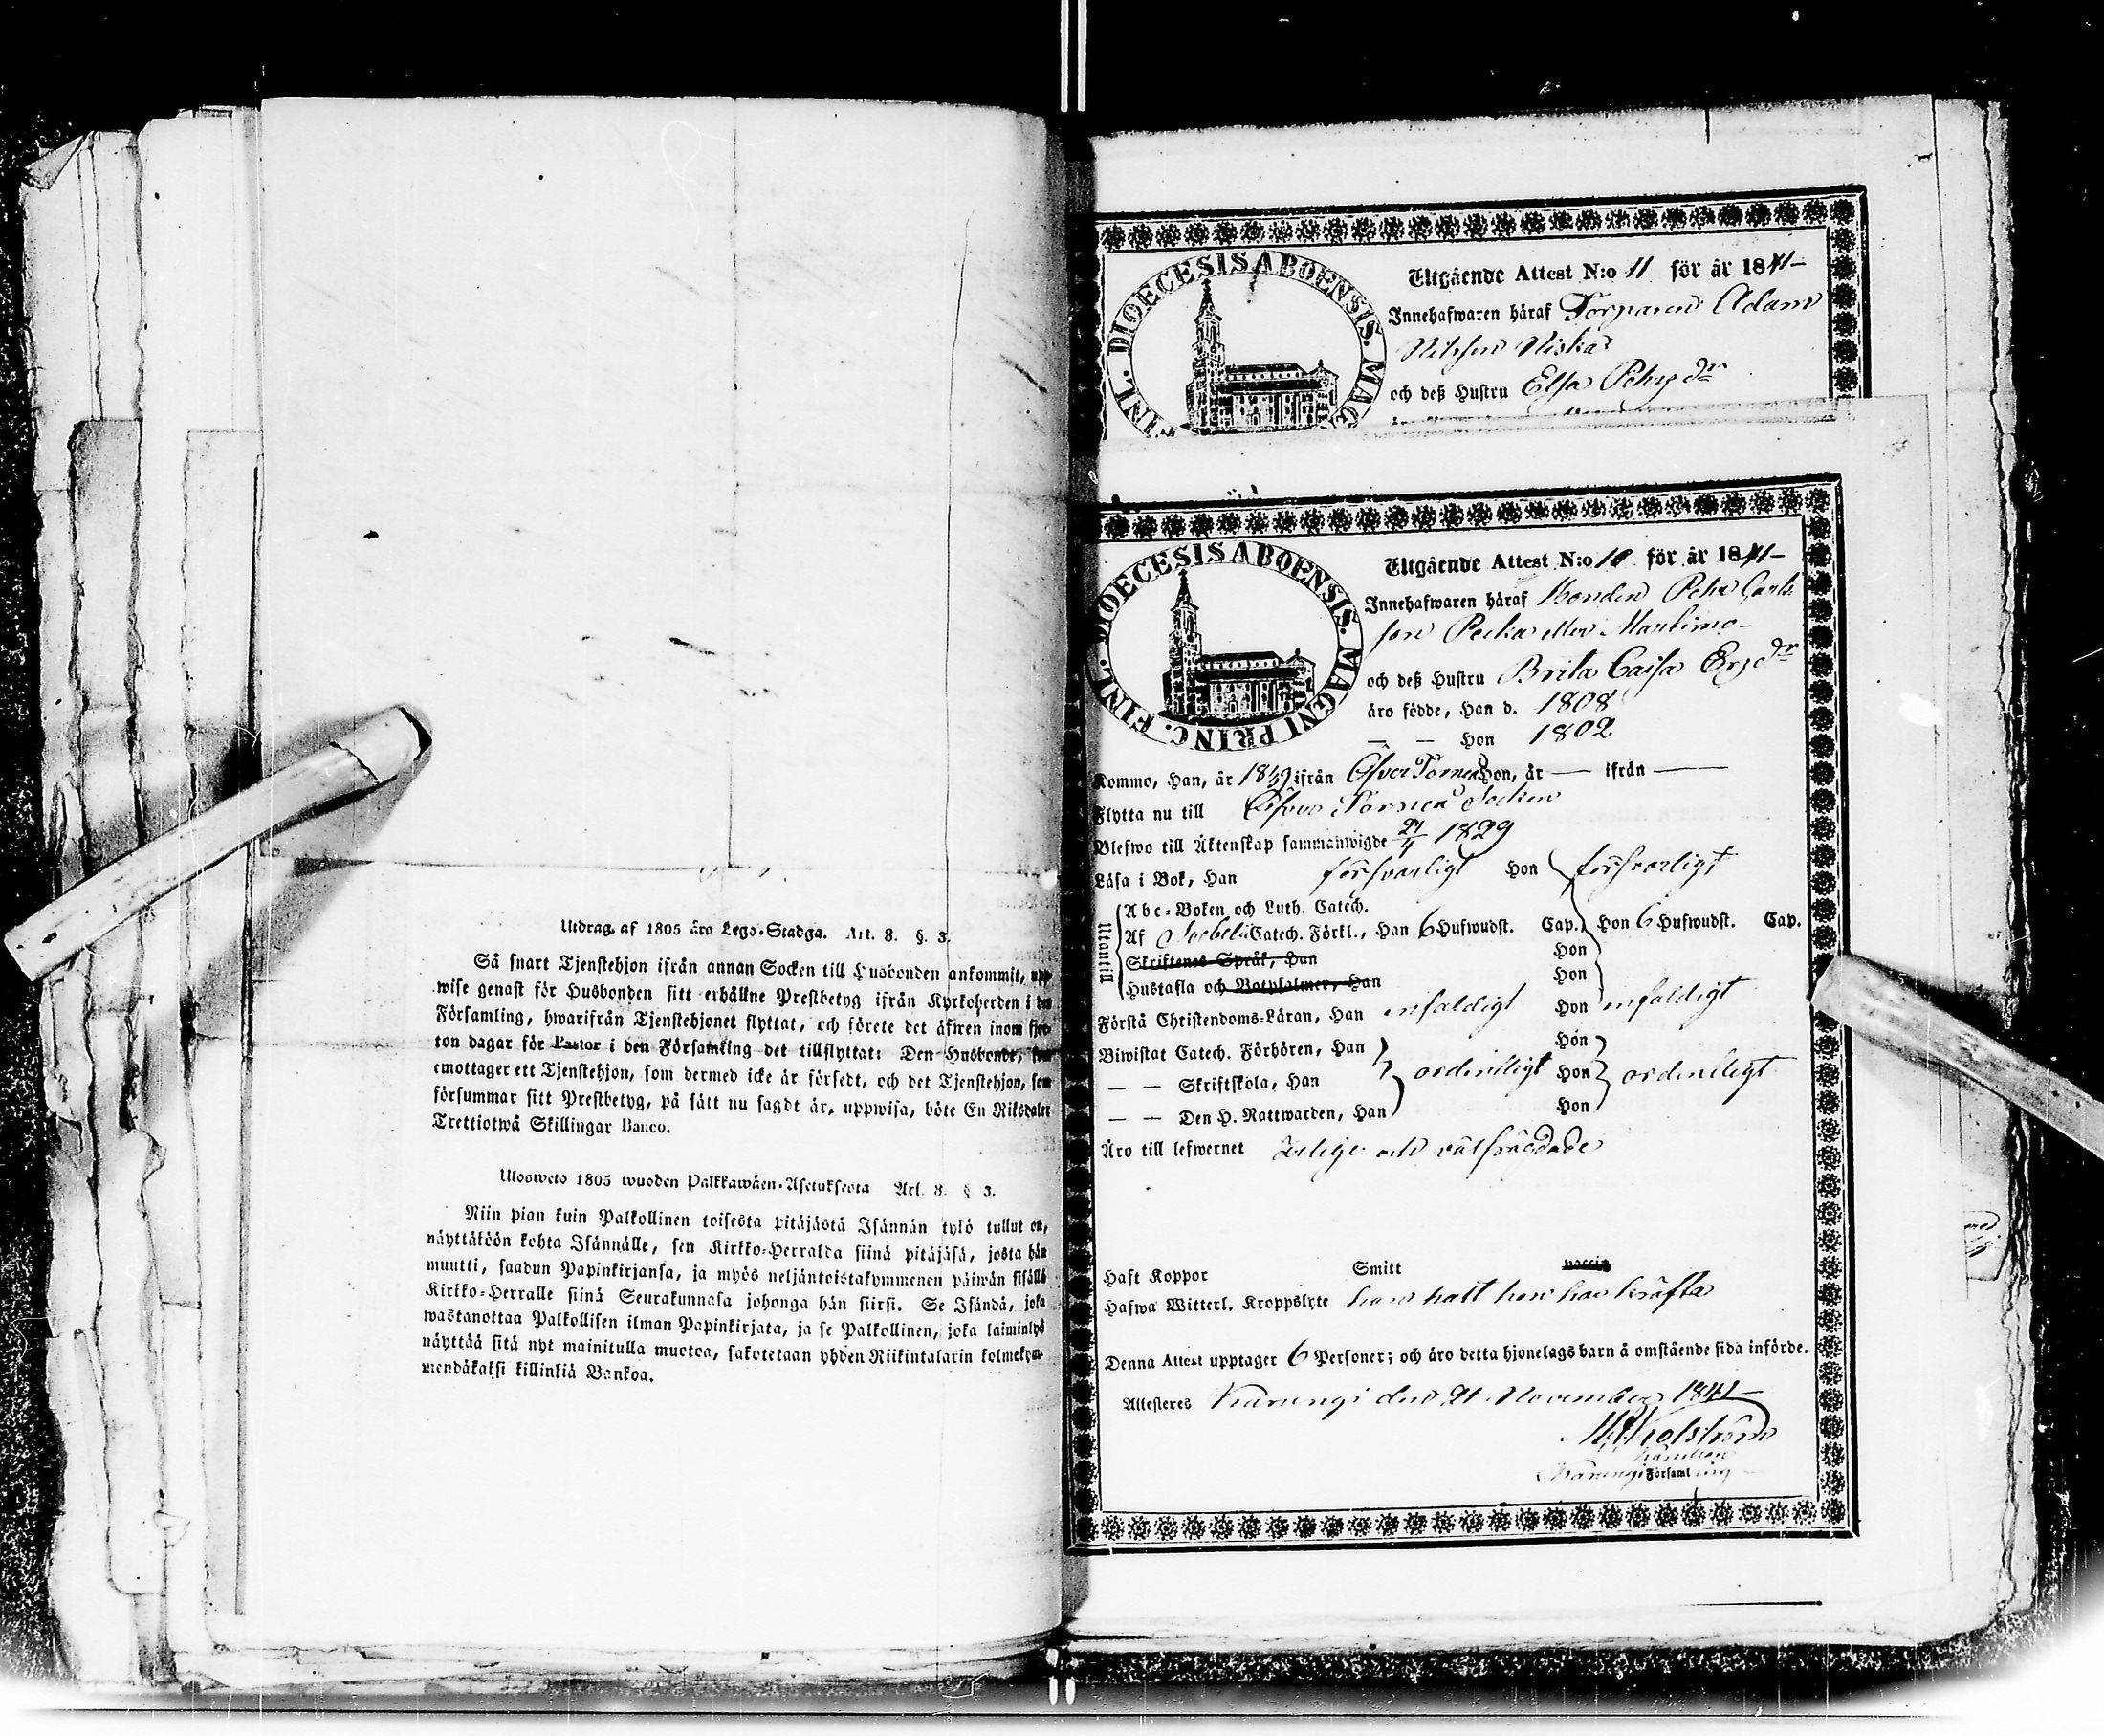 Utdrag af 1805 års Lego-Stadga. Art. 8. §. 3.
Så snart Tjenstehjon ifrån annan Socken till Husbonden ankommit, upp-
wise genast för Husbonden sitt erhållne Prestbetyg ifrån Kyrkoherden i den
Församling, hwarifrån Tjenstehjonet flyttat, och förete det äfwen inom fjor-
ton dagar för Pastor i den Församling det tillflyttat: Den Husbonde, som
emottager ett Tjenstehjon, som dermed icke är försedt, och det Tjenstehjon, som
försummar sitt Prestbetyg, på sätt nu sagdt är, uppwisa, böte En Riksdaler
Trettiotwå Skillingar Banco.
Ulosweto 1805 wuoden Palkkawäen-Asetuksesta Art. 8. § 3.
Niin pian kuin Palkollinen toisesta pitäjästä Isännän tykö tullut on,
näyttäköön kohta Isännälle, sen Kirkko-Herralda siinä pitäjäsä, josta hän
muutti, saadun Papinkirjansa, ja myös neljäntoistakymmenen päiwän sisällä
Kirkko-Herralle siinä Seurakunnasa johonga hän siirsi. Se Isändä, joka
wastanottaa Palkollisen ilman Papinkirjata, ja se Palkollinen, joka laiminlyö
näyttää sitä nyt mainitulla muotoa, sakotetaan yhden Riikintalarin kolmekym-
mendäkaksi killinkiä Bankoa.
FINL. DIOECESIS ABOENSIS. MAG
Utgående Attest N:o 11 för år 1841-
Innehafwaren häraf Torparen Adam
Nilsson Niska
och deß Hustru Elsa Pehrs dr
DIOECESIS ABOENSIS. MAGNI PRINC. FINL.
Utgående Attest N:o 10 för år 1841-
Innehafwaren häraf Bonden Pehr Carls
son Pecka eller Martimo-
och deß Hustru Brita Caisa Ersdr
äro födde, Han d. 1808
— — Hon 1802
Kommo, Han, år ifrån Öfver Torneå Hon, år — ifrån —
Flytta nu till Öfver Torneå Socken
Blefwo till Äktenskap sammanwigde 21/4 1829
Läsa i Bok, Han försvarligt Hon försvarligt
Utantill
Abc-Boken och Luth. Catech.
Af Catech. Förkl., Han 6 Hufwudst. Cap. Hon 6 Hufwudst. Cap.
Skriftenes Språk, Han Hon
Hustafla och Botpsalmer, Han Hon
Förstå Christendoms-Läran, Han enfaldigt Hon enfaldigt
Biwistat Catech. Förhören, Han Hon
— — Skriftskola, Han ordentligt Hon ordentligt
— — Den H. Nattwarden, Han Hon
Äro till lefwernet ärlige och välfrägdade
Haft Koppor Smitt vaccin
Hafwa Witterl. Kroppslyte han haft hon har kräfta
Denna Attest upptager 6 Personer; och äro detta hjonelags barn å omstående sida införde.
Attesteres Karungi den 21 November 1841
Karungi Församling